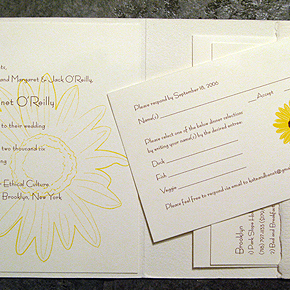 ts,
and Margaret & Jack O'Reilly,
net O'Reilly
to their wedding
two thousand six
Ethical Culture
Brooklyn, New York
Please respond by September 18, 2006
Name(s)
Accept
Please select one of the below dinner selections
by writing your name(s) by the desired entree.
Duck
Fish
Veggie
Please feel free to respond via email to
Brooklyn
1) Park Slope
(718)
2) Bed and Breakfast